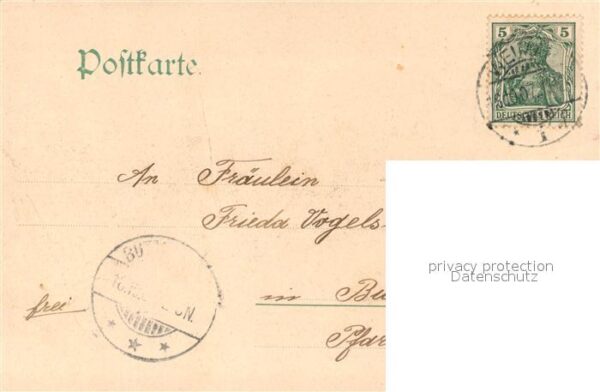 Postkarte.
5 5
DEUTSCHES REICH
An Fräulein
Frieda Vogels-
privacy protection
Datenschutz
frei
in Bu
Pfar